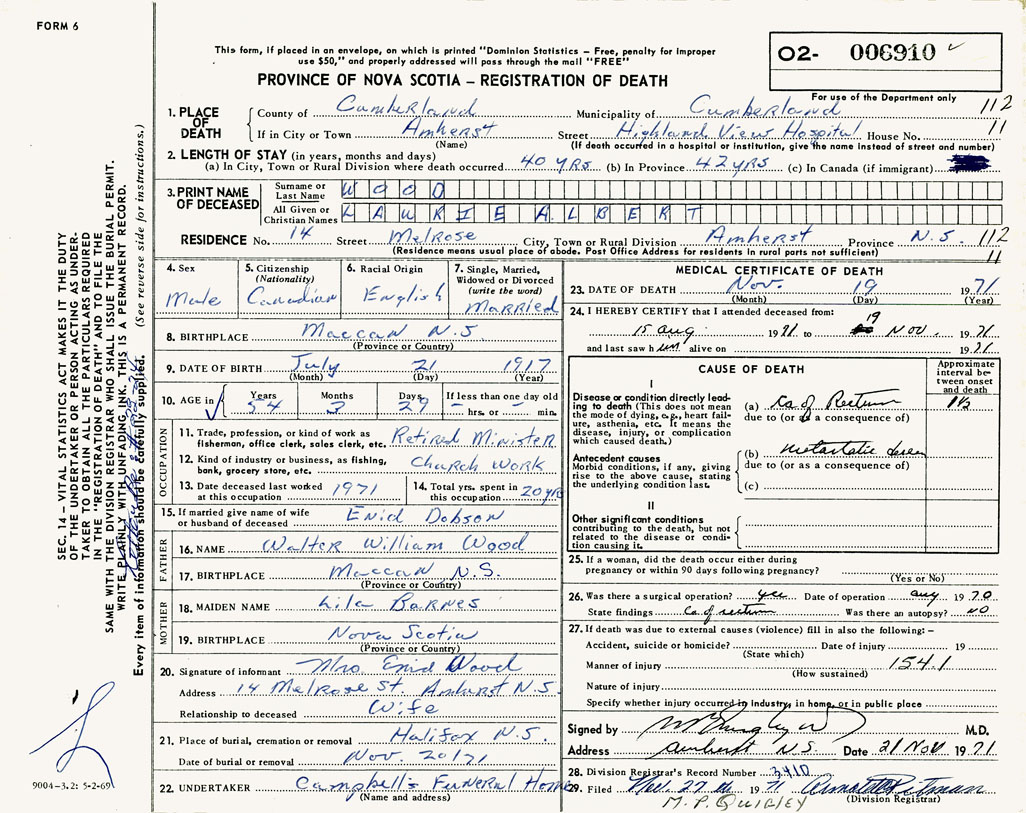 FORM 6
This form, if placed in an envelope, on which is printed "Dominion Statistics – Free, penalty for improper
use $50," and properly addressed will pass through the mail "FREE"
PROVINCE OF NOVA SCOTIA – REGISTRATION OF DEATH
O2- 006910
For use of the Department only
1. PLACE OF DEATH
County of Cumberland Municipality of Cumberland 112
If in City or Town Amherst Street Highland View Hospital House No. 11
(Name) (If death occurred in a hospital or institution, give the name instead of street and number)
2. LENGTH OF STAY (in years, months and days)
(a) In City, Town or Rural Division where death occurred 40 yrs (b) In Province 42 yrs (c) In Canada (if immigrant)
3. PRINT NAME OF DECEASED
Surname or Last Name WOOD
All Given or Christian Names LAURIE ALBERT
RESIDENCE No. 14 Street Melrose City, Town or Rural Division Amherst Province N.S. 112
(Residence means usual place of abode. Post Office Address for residents in rural parts not sufficient) 11
4. Sex
Male
5. Citizenship
(Nationality)
Canadian
6. Racial Origin
English
7. Single, Married,
Widowed or Divorced
(write the word)
Married
8. BIRTHPLACE Maccan N.S.
(Province or Country)
9. DATE OF BIRTH July 21 1917
(Month) (Day) (Year)
10. AGE in Years Months Days If less than one day old
54 3 29 – hrs. or – min.
OCCUPATION
11. Trade, profession, or kind of work as
fisherman, office clerk, sales clerk, etc. Retired Minister
12. Kind of industry or business, as fishing,
bank, grocery store, etc. Church Work
13. Date deceased last worked
at this occupation 1971
14. Total yrs. spent in
this occupation 20 yrs
15. If married give name of wife
or husband of deceased Enid Dobson
FATHER
16. NAME Walter William Wood
17. BIRTHPLACE Maccan N.S.
(Province or Country)
MOTHER
18. MAIDEN NAME Lila Barnes
19. BIRTHPLACE Nova Scotia
(Province or Country)
20. Signature of informant Mrs. Enid Wood
Address 14 Melrose St. Amherst N.S.
Relationship to deceased Wife
21. Place of burial, cremation or removal Halifax N.S.
Date of burial or removal Nov. 20/71
22. UNDERTAKER Campbell's Funeral Home
(Name and address)
MEDICAL CERTIFICATE OF DEATH
23. DATE OF DEATH Nov. 19 1971
(Month) (Day) (Year)
24. I HEREBY CERTIFY that I attended deceased from:
15 aug. 1971 to 19 Nov. 1971
and last saw him alive on 1971
CAUSE OF DEATH
Approximate
interval be-
tween onset
and death
I
Disease or condition directly lead-
ing to death (This does not mean
the mode of dying, e.g., heart fail-
ure, asthenia, etc. It means the
disease, injury, or complication
which caused death.)
(a) Ca of Rectum
due to (or as a consequence of)
Antecedent causes
Morbid conditions, if any, giving
rise to the above cause, stating
the underlying condition last.
(b) metastatic
due to (or as a consequence of)
(c)
II
Other significant conditions
contributing to the death, but not
related to the disease or condi-
tion causing it.
25. If a woman, did the death occur either during
pregnancy or within 90 days following pregnancy?
(Yes or No)
26. Was there a surgical operation? yes Date of operation aug 1970
State findings Ca. of rectum Was there an autopsy? NO
27. If death was due to external causes (violence) fill in also the following: –
Accident, suicide or homicide? Date of injury 19
(State which)
Manner of injury 154.1
(How sustained)
Nature of injury
Specify whether injury occurred in industry, in home, or in public place
Signed by M.D.
Address Amherst N.S. Date 21 Nov 1971
28. Division Registrar's Record Number 3410
29. Filed Nov. 27 1971
(Division Registrar)
M. P. QUIGLEY
SEC. 14 – VITAL STATISTICS ACT MAKES IT THE DUTY
OF THE UNDERTAKER OR PERSON ACTING AS UNDER-
TAKER TO OBTAIN ALL THE PARTICULARS REQUIRED
IN THE "REGISTRATION OF DEATH" AND TO FILE THE
SAME WITH THE DIVISION REGISTRAR WHO SHALL ISSUE THE BURIAL PERMIT.
WRITE PLAINLY WITH UNFADING INK. THIS IS A PERMANENT RECORD.
Every item of information should be carefully supplied. (See reverse side for instructions.)
9004-3.2: 5-2-69